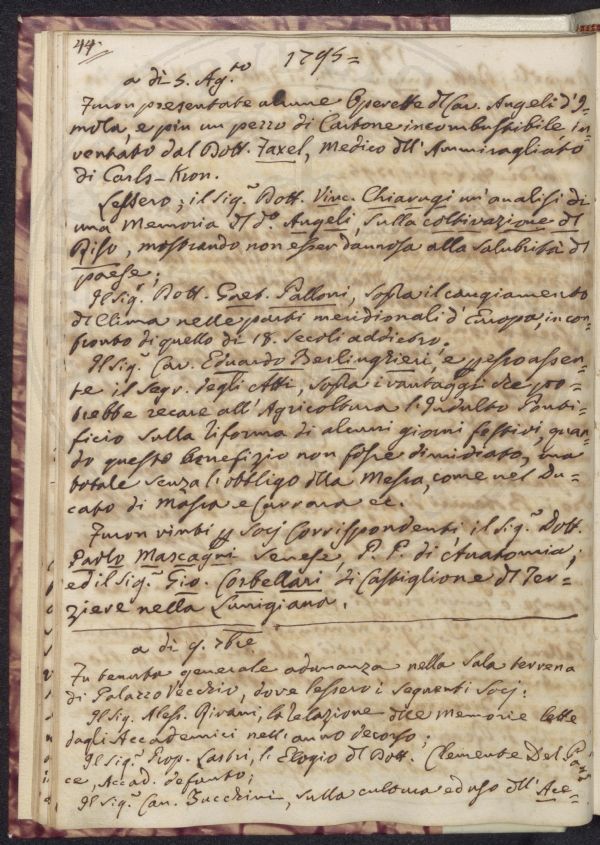 44.
1795=
a dì 5. Ag.to
Furon presentate alcune Operette d'l Cav. Angeli d'I=
mola, e più un pezzo di Cartone incombustibile in=
ventato dal Dott. Faxel, Medico dll'Ammiragliato
di Carls-Kron.
Lessero; il Sig.r Dott. Vinc. Chiarugi un'analisi di
una Memoria d'l d.o Angeli, sulla coltivazione d'l
Riso, mostrando non esser dannosa alla salubrità d'l
paese;
Il Sig.r Dott. Gaet. Palloni, sopra il cangiamento
d'l Clima nelle parti meridionali d'Europa, in con=
fronto di quello di 18. Secoli addietro.
Il Sig.r Cav. Eduardo Berlinghieri, e p esso assen=
te il Segr. degli Atti, sopra i vantaggi che po=
trebbe recare all'Agricoltura l'Indulto Ponti=
ficio sulla riforma di alcuni giorni festivi, quan=
do questo benefizio non fosse dimidiato, ma
totale senza l'obbligo dlla Messa, come nel Du=
cato di Massa e Carrara ec.
Furon vinti p Socj Corrispondenti il Sig.r Dott.
Paolo Mascagni Senese, P. P. di Anatomia;
ed il Sig.r Gio. Corbellari di Castiglione d'l Ter=
ziere nella Lunigiana.
a dì 9. 7bre
Fu tenuta generale adunanza nella Sala terrena
di Palazzo Vecchio, dove lessero i seguenti Socj:
Il Sig. Aless. Rivani, la relazione dlle Memorie lette
dagli Accademici nell'anno decorso;
Il Sig.r Prop. Lastri, l'Elogio d'l Dott. Clemente Del Pa
ce, Accad. defunto;
Il Sig.r Can. Zucchini, sulla cultura ed uso dll'Ace=